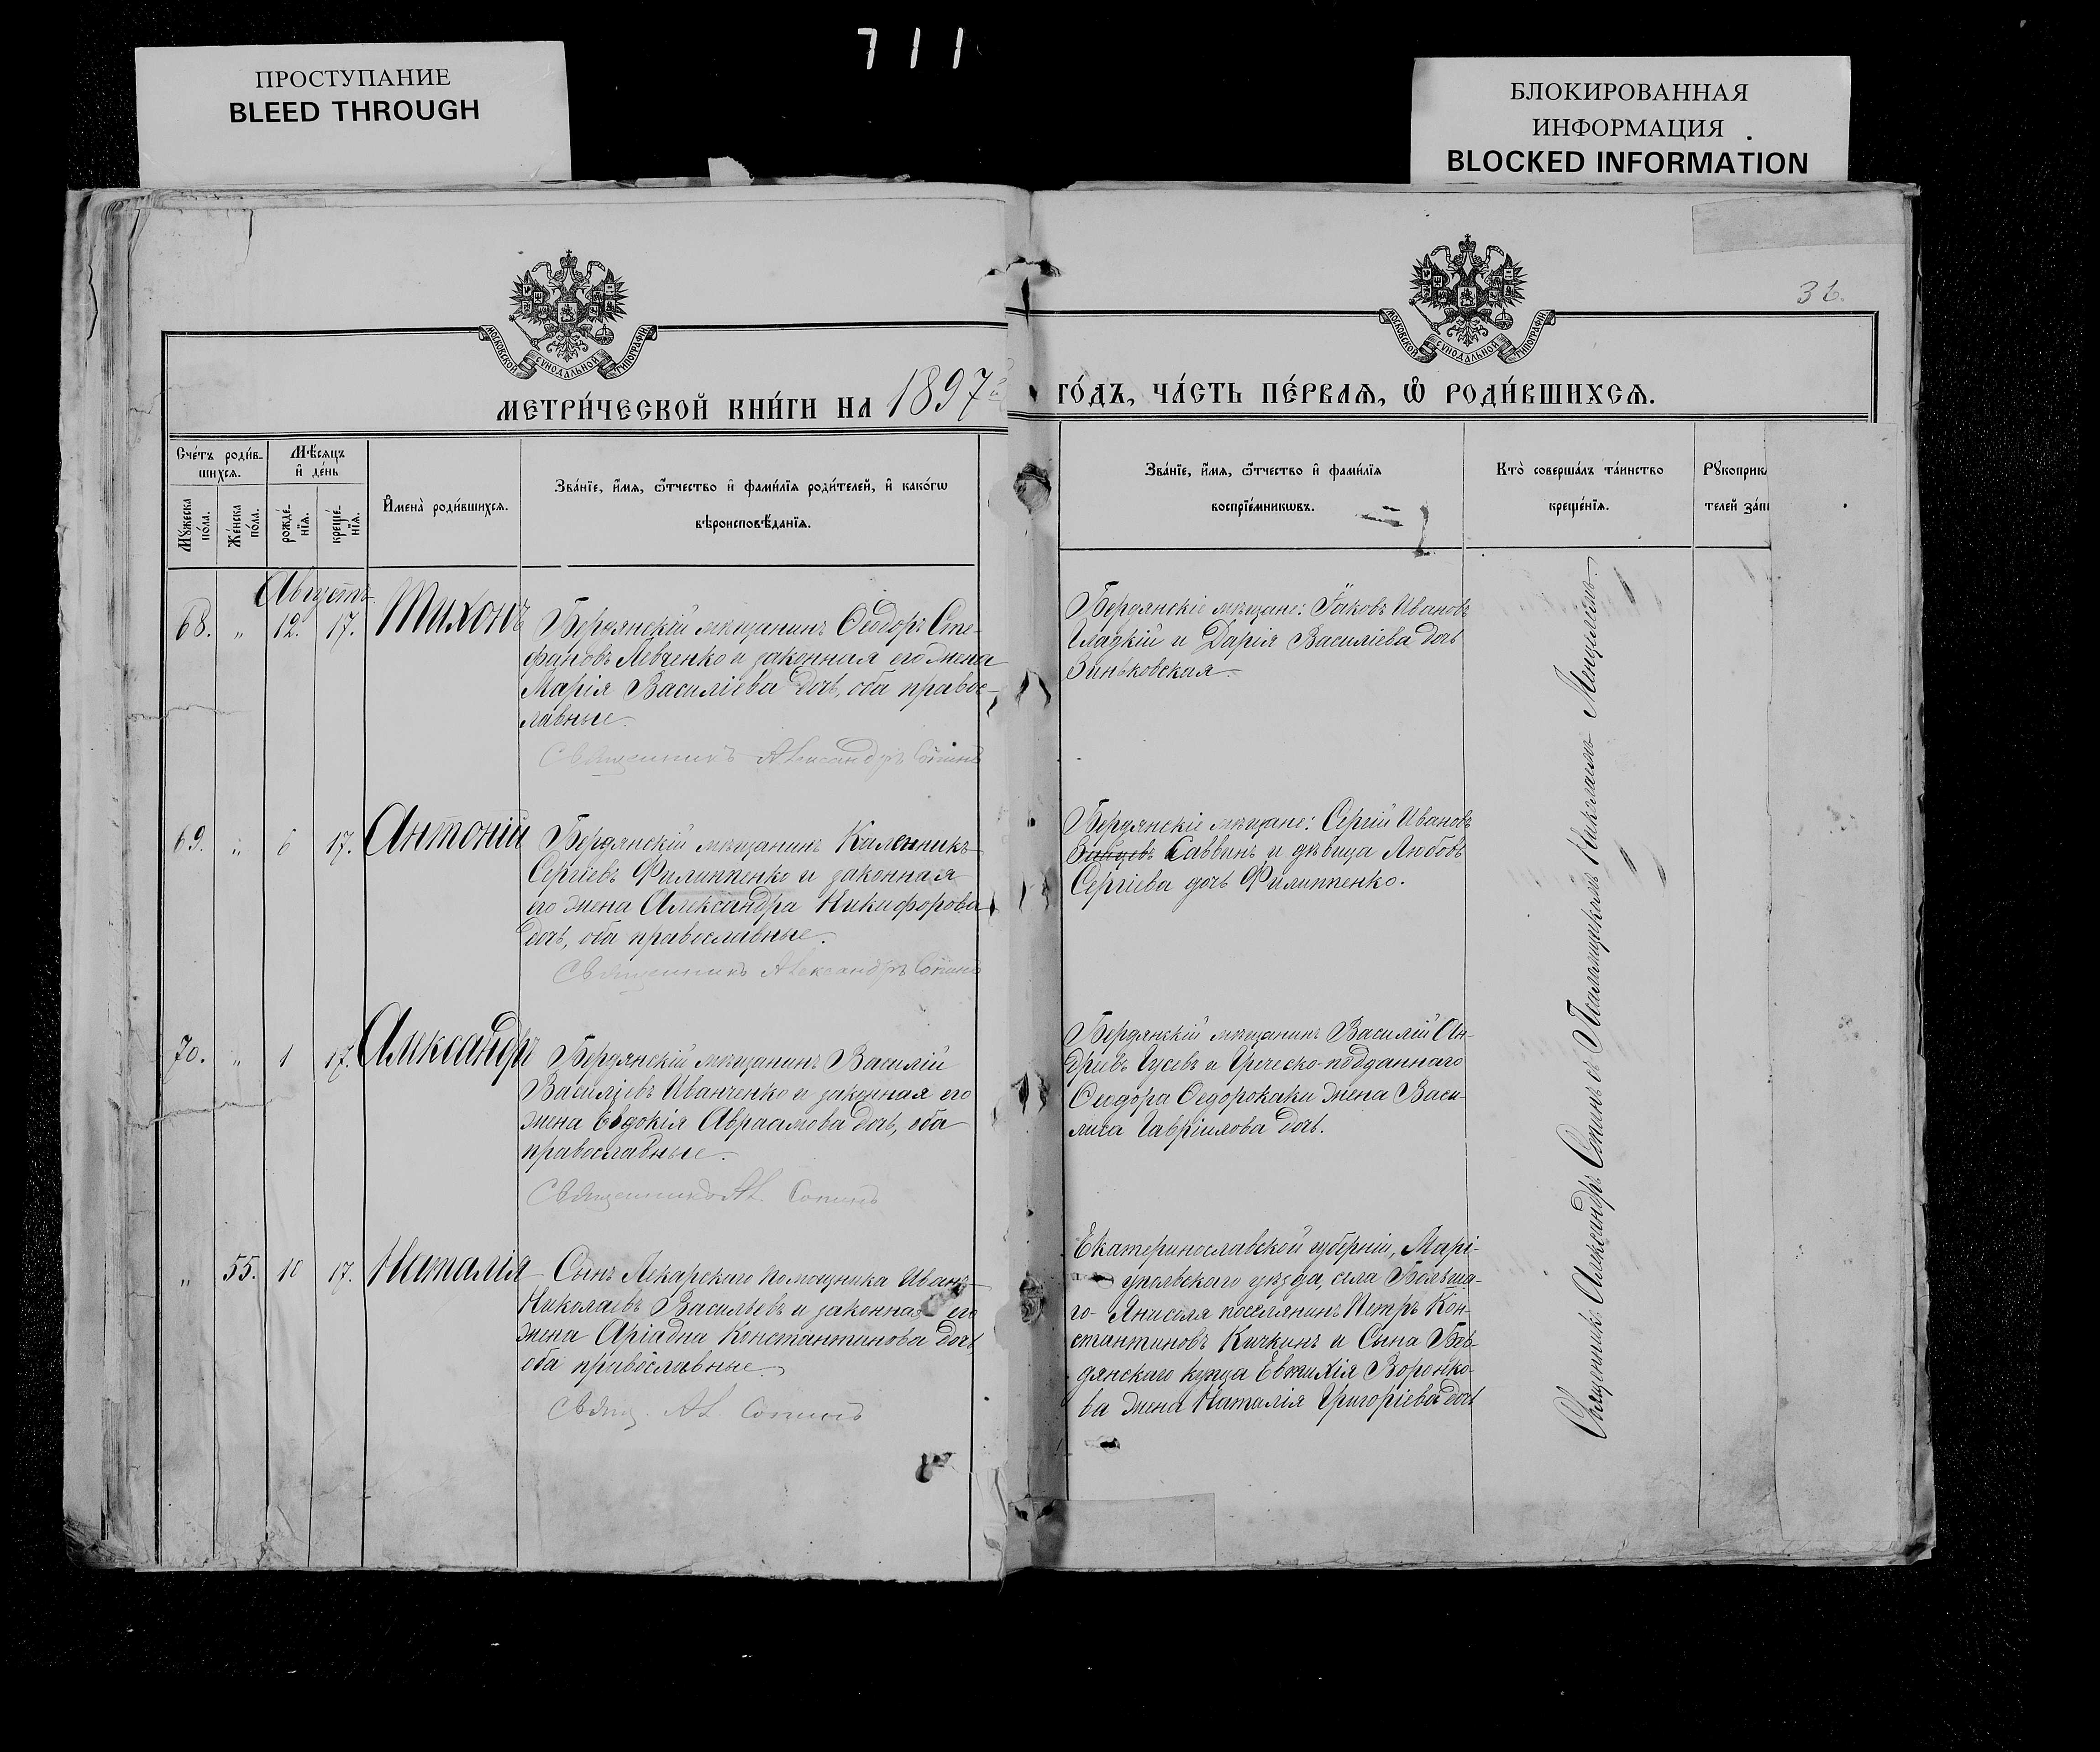 711
ПРОСТУПАНИЕ
BLEED THROUGH
БЛОКИРОВАННАЯ
ИНФОРМАЦИЯ
BLOCKED INFORMATION
36.
МОСКОВСКОЙ СУНОДАЛЬНОЙ ТИПОГРАФІИ
МОСКОВСКОЙ СУНОДАЛЬНОЙ ТИПОГРАФІИ
МЕТРИ́ЧЕСКОЙ КНИ́ГИ НА 1897й
ГО́ДЪ, ЧА́СТЬ ПЕ́РВАЯ, Ѡ РОДИ́ВШИХСЯ.
Сче́тъ роди́в-
шихся.
Мѣ́сяцъ
и҆ де́нь
Мꙋ́жеска по́ла.
Же́нска по́ла.
рожде́-
нїя.
креще́-
нїя.
И҆мена̀ роди́вшихся.
Зва́нїе, и҆́мя, ѻ҆́тчество и҆ фами́лїя роди́телей, и҆ како́гѡ
вѣроисповѣ́данїя.
Зва́нїе, и҆́мя, ѻ҆́тчество и҆ фами́лїя
воспрїе́мникѡвъ.
Кто̀ соверша́лъ та́инство
креще́нїя.
Рꙋкоприк
телей за́пи
Августъ
68. „ 12. 17. Тихонъ
Бердянскій мѣщанинъ Ѳеодоръ Сте-
фановъ Левченко и законная его жена
Марія Василіева дочь, оба правос-
лавные.
Священникъ Александръ Сопинъ
Бердянскіе мѣщане: Іаковъ Ивановъ
Гладкій и Дарія Василіева дочь
Зиньковская.
69. „ 6 17. Антоній
Бердянскій мѣщанинъ Каленникъ
Сергіевъ Филиппенко и законная
его жена Александра Никифорова
дочь, оба православные.
Священникъ Александръ Сопинъ
Бердянскіе мѣщане: Сергій Ивановъ
Саввинъ и дѣвица Любовь
Сергіева дочь Филиппенко.
70. „ 1 17. Александръ
Бердянскій мѣщанинъ Василій
Василіевъ Иванченко и законная его
жена Евдокія Авраамова дочь, оба
православные.
Священникъ Ал. Сопинъ
Бердянскій мѣщанинъ Василій Ан-
дреевъ Гусевъ и Греческо-подданнаго
Ѳеодора Ѳедорокаки жена Васи-
лиса Гавріилова дочь.
„ 55. 10 17. Наталія
Сынъ Лекарскаго помощника Иванъ
Николаевъ Васильевъ и законная его
жена Аріадна Константинова дочь
оба православные.
Свящ. Ал. Сопинъ
Екатеринославской губерніи, Марі-
упольскаго уѣзда, села Больша-
го Янисоля поселянинъ Петръ Кон-
стантиновъ Кичкинъ и Сына Бер-
дянскаго купца Евтихія Воронко-
ва жена Наталія Григоріева дочь
Священникъ Александръ Сопинъ съ Псаломщикомъ Николаемъ